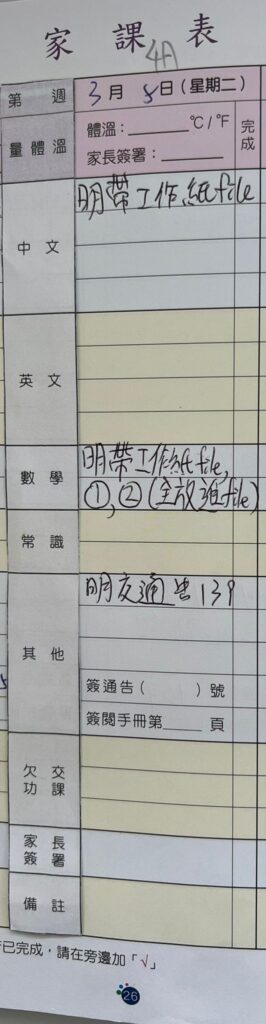 家課表
4A
第 週 3月5日(星期二)
量體溫 體溫:______°C/°F 完成
家長簽署:______
中文 明帶工作紙file
英文
數學 明帶工作紙file,
①,②(全放進file)
常識
其他 明交通告139
簽通告( )號
簽閱手冊第____頁
欠交功課
家長簽署
備註
已完成,請在旁邊加「√」
26